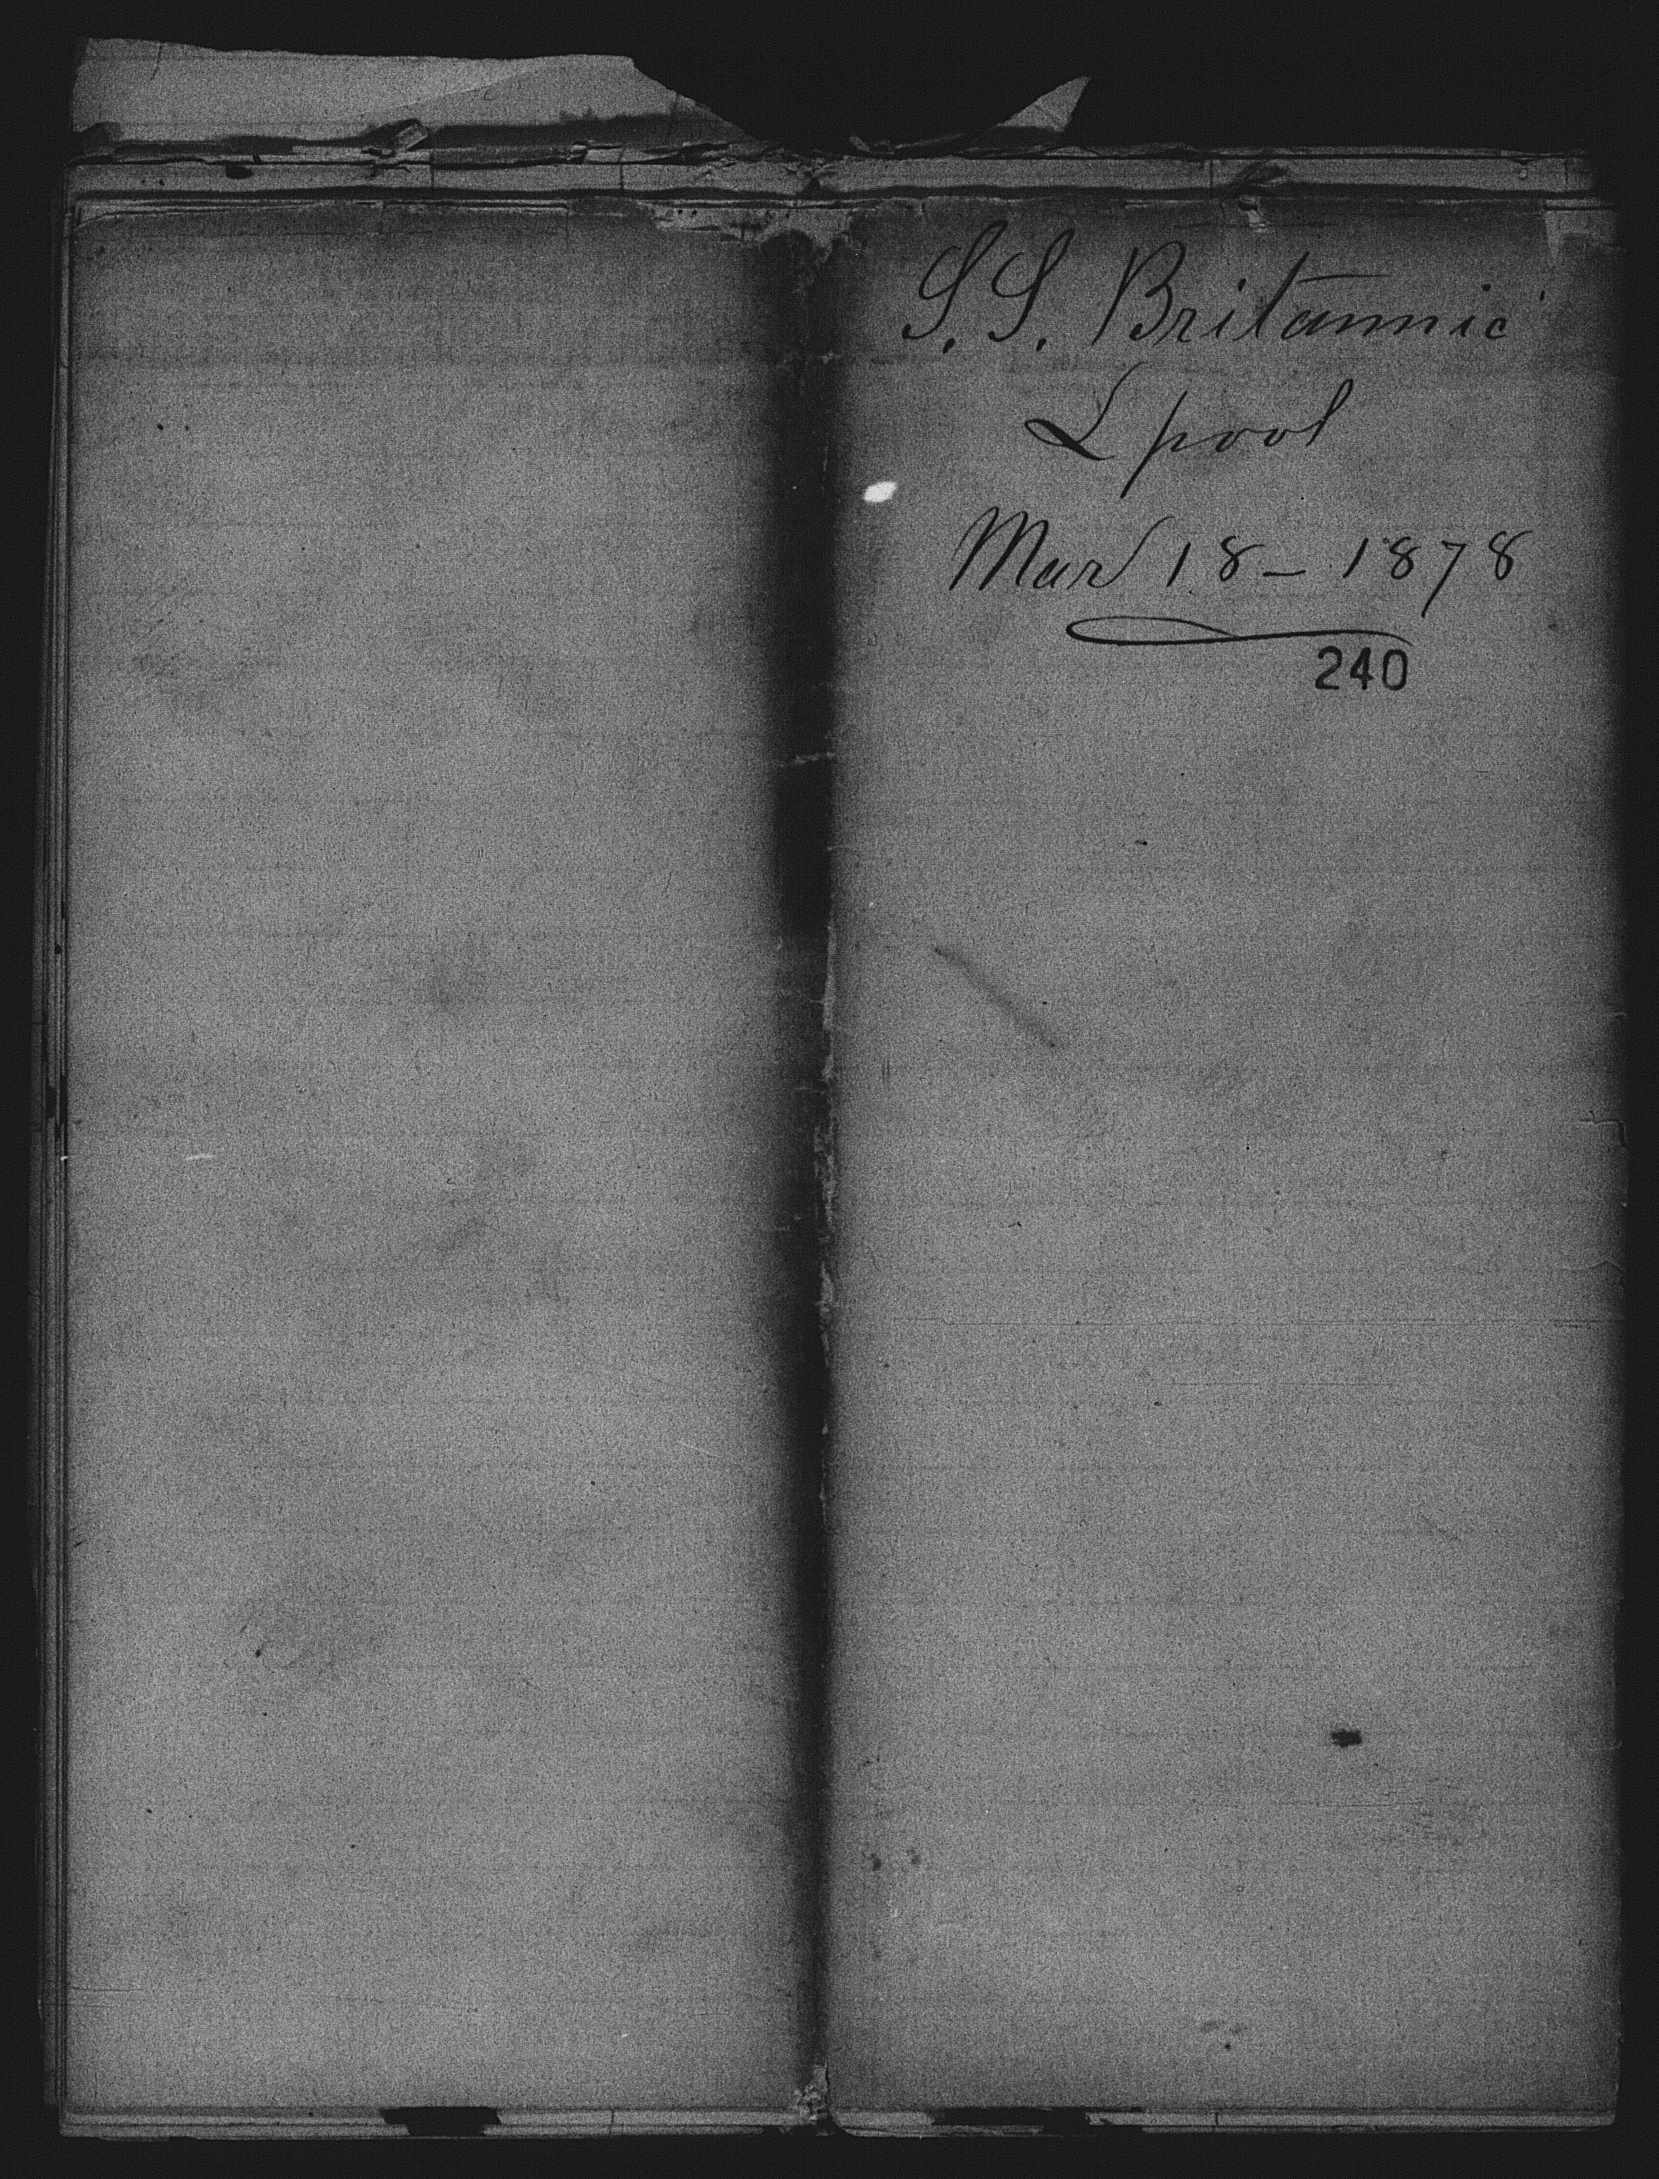 S.S. Britannic
Lpool
Mar 18 - 1878
240